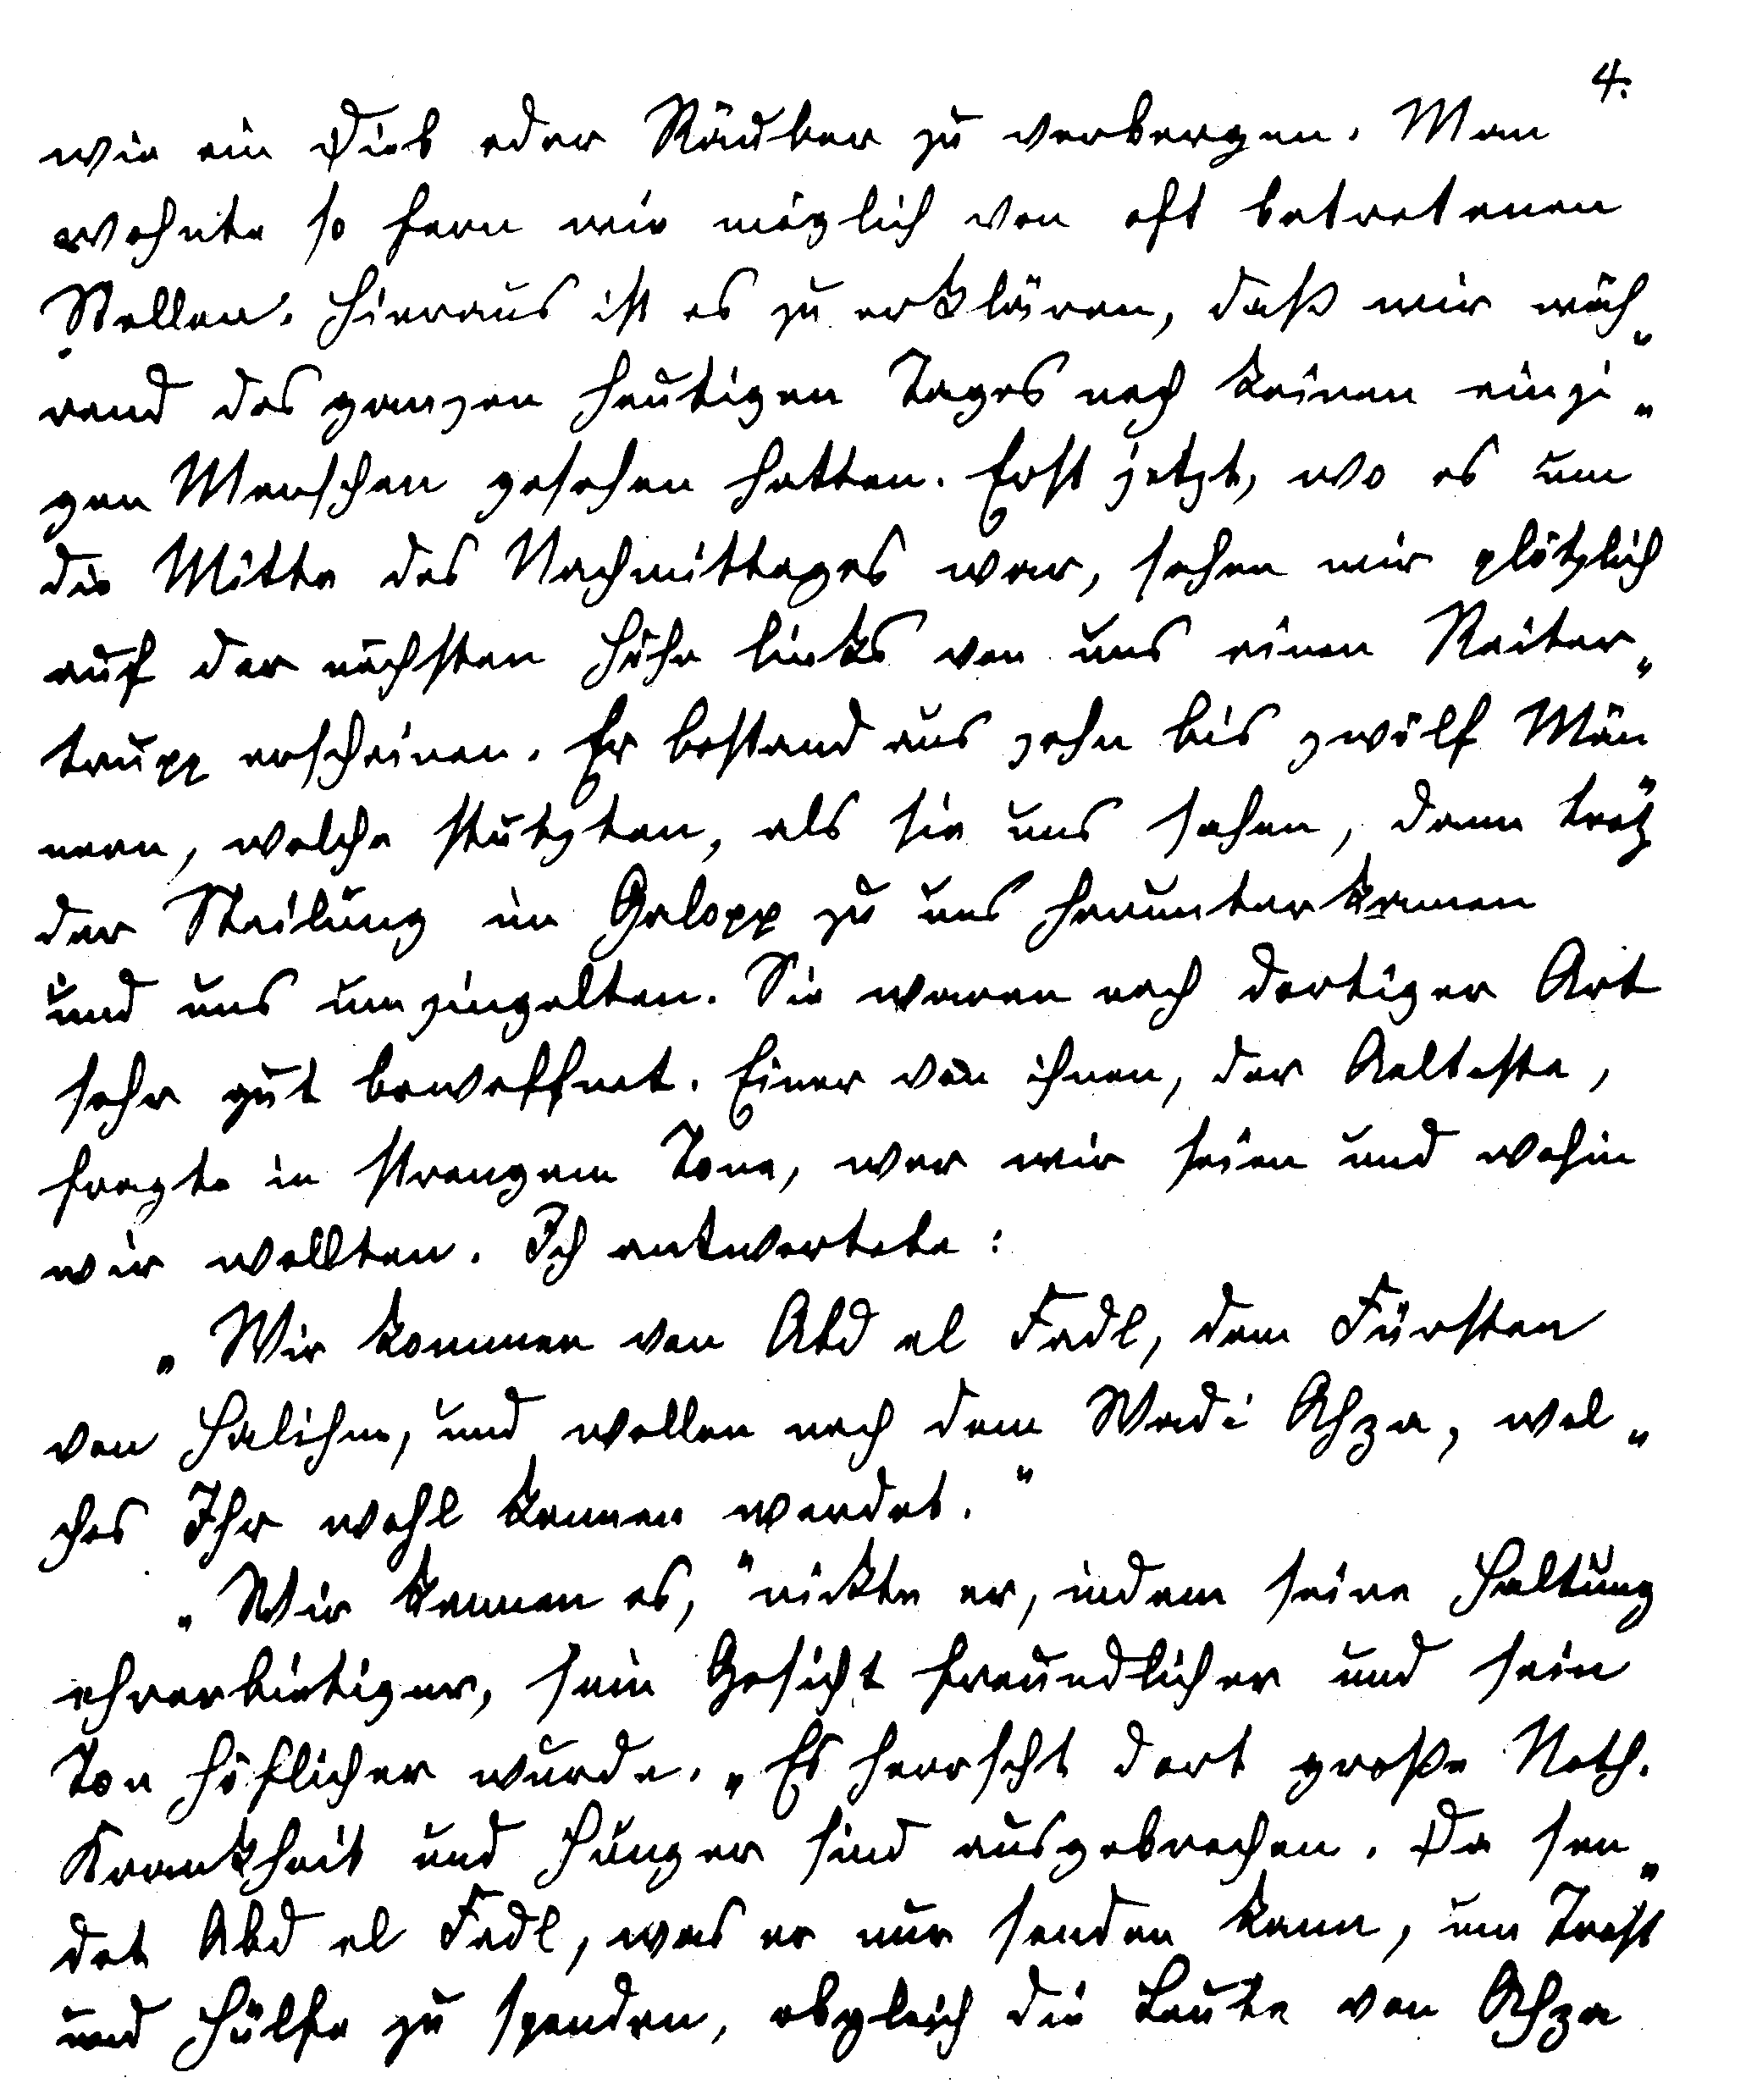 4.
wie ein Dieb oder Räuber zu verbergen. Man
wohnte so fern wie möglich von oft betretenen
Stellen. Hieraus ist es zu erklären, daß wir wäh„
rend des ganzen heutigen Tages noch keinen einzi„
gen Menschen gesehen hatten. Erst jetzt, wo es um
die Mitte des Nachmittages war, sahen wir plötzlich
auf der nächsten Höhe links von uns einen Reiter„
trupp erscheinen. Er bestand aus zehn bis zwölf Män„
nern, welche stutzten, als sie uns sahen, dann trotz
der Steilung im Galopp zu uns herunterkamen
und uns umzingelten. Sie waren nach dortiger Art
sehr gut bewaffnet. Einer von ihnen, der Aelteste,
fragte in strengem Tone, wer wir seien und wohin
wir wollten. Ich antwortete:
„Wir kommen von Abd el Fadl, dem Fürsten
von Halihm, und wollen nach dem Wadi Ahza, wel„
ches Ihr wohl kennen werdet.“
„Wir kennen es,“ nickte er, indem seine Haltung
ehrerbietiger, sein Gesicht freundlicher und sein
Ton höflicher wurde. „Es herrscht dort große Noth.
Krankheit und Hunger sind ausgebrochen. Da sen„
det Abd el Fadl, was er nur senden kann, um Trost
und Hülfe zu spenden, obgleich die Leute von Ahza